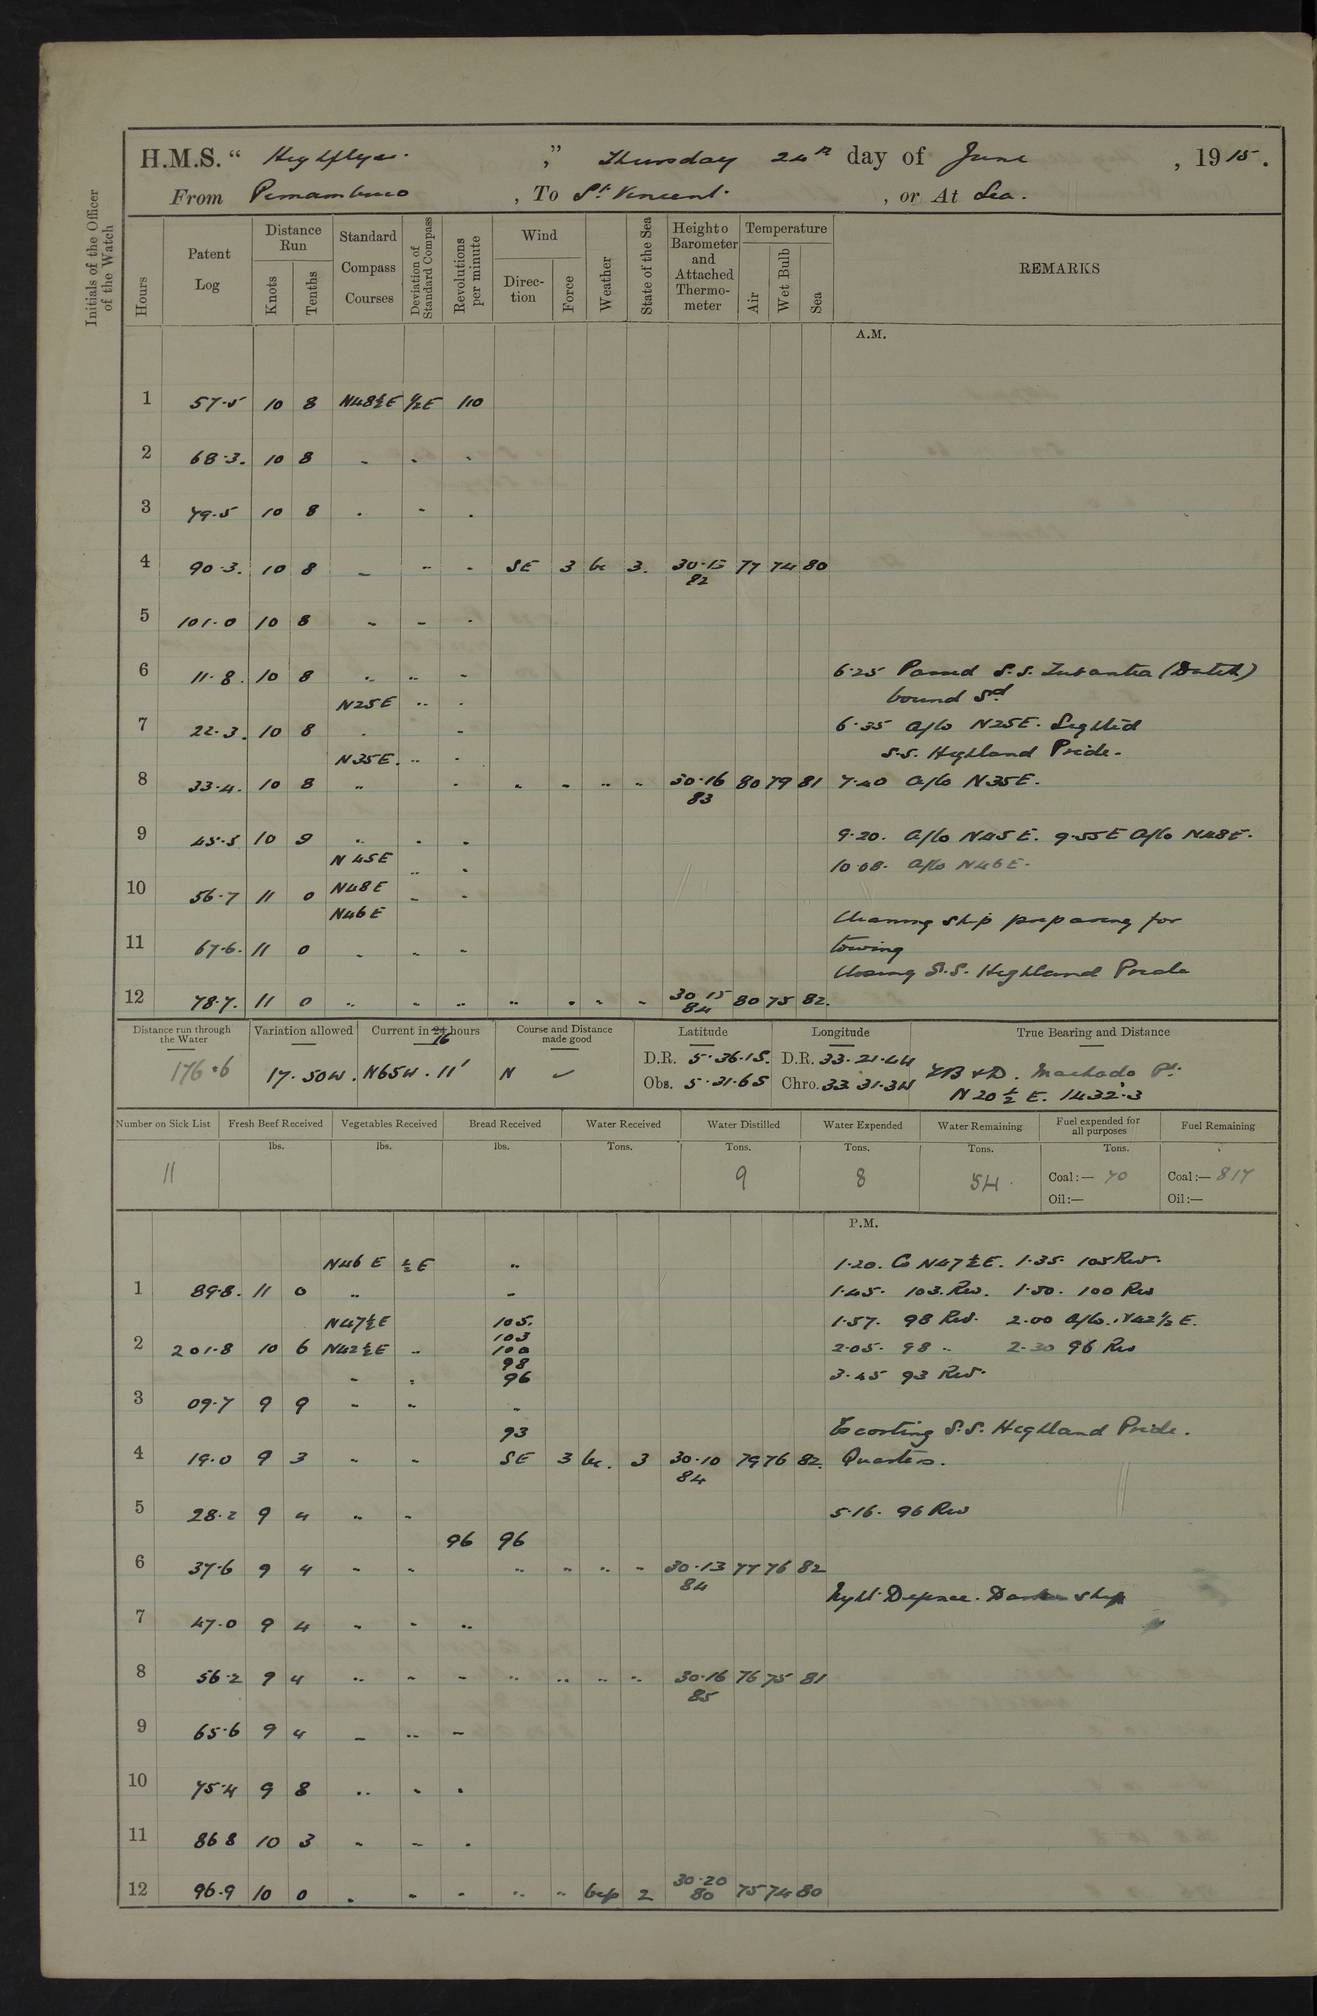 H.M.S. “ Highflyer. ,” Thursday 24th day of June , 1915.
From Pernambuco , To St. Vincent. , or At Sea.
Initials of the Officer of the Watch
Hours Patent Log Distance Run Knots Tenths Standard Compass Courses Deviation of Standard Compass Revolutions per minute Wind Direction Force Weather State of the Sea Height o Barometer and Attached Thermometer Temperature Air Wet Bulb Sea REMARKS
A.M.
1 57.5 10 8 N48½E ½E 110
2 68.3. 10 8 " " "
3 79.5 10 8 " " "
4 90.3. 10 8 " " " SE 3 bc 3. 30.15 82 77 74 80
5 101.0 10 8 " " "
6 11.8. 10 8 " " " 6.25 Passed S.S. (Dutch)
N25E " " bound Sd
7 22.3. 10 8 " " 6.35 a/co N25E. Sighted
N35E. " " S.S. Highland Pride.
8 33.4. 10 8 " " " " " " 30.16 83 80 79 81 7.40 a/co N35E.
9 45.5 10 9 " " " 9.20. a/co N45E. 9.55E a/co N48E.
N45E " " 10.08. a/co N46E.
10 56.7 11 0 N48E " "
N46E Cleaning ship preparing for
11 67.6. 11 0 " " " towing
Closing S.S. Highland Pride
12 78.7. 11 0 " " " " " " " 30.15 84 80 75 82.
Distance run through the Water Variation allowed Current in 24 16 hours Course and Distance made good Latitude Longitude True Bearing and Distance
176.6 17.50W. N65W. 11' N ✓ D.R. 5.36.15. D.R. 33.21.4W TB & D. Machado Pt.
Obs. 5.31.6S Chro. 33.31.3W N20½E. 1432.3
Number on Sick List Fresh Beef Received Vegetables Received Bread Received Water Received Water Distilled Water Expended Water Remaining Fuel expended for all purposes Fuel Remaining
lbs. lbs. lbs. Tons. Tons. Tons. Tons. Tons.
11 9 8 54. Coal:— 70 Coal:— 817
Oil:— Oil:—
P.M.
N46E ½E " 1.20. Co N47½E. 1.35. 105 Rev.
1 89.8. 11 0 " " 1.45. 103. Rev. 1.50. 100 Rev
N47½E 105. 1.57. 98 Rev. 2.00 a/co. N42½E.
2 201.8 10 6 N42½E " 103 100 2.05. 98 " 2.30 96 Rev
" " 98 96 3.45 93 Rev.
3 09.7 9 9 " " "
93 Escorting S.S. Highland Pride.
4 19.0 9 3 " " SE 3 bc. 3 30.10 84 79 76 82. Quarters.
5 28.2 9 4 " " 5.16. 96 Rev
96 96
6 37.6 9 4 " " " " " " 30.13 84 77 76 82
Night Defence. Darken ship
7 47.0 9 4 " " "
8 56.2 9 4 " " " " " " " 30.16 85 76 75 81
9 65.6 9 4 " " "
10 75.4 9 8 " " "
11 86 8 10 3 " " "
12 96.9 10 0 " " " " " bcp 2 30.20 80 75 74 80